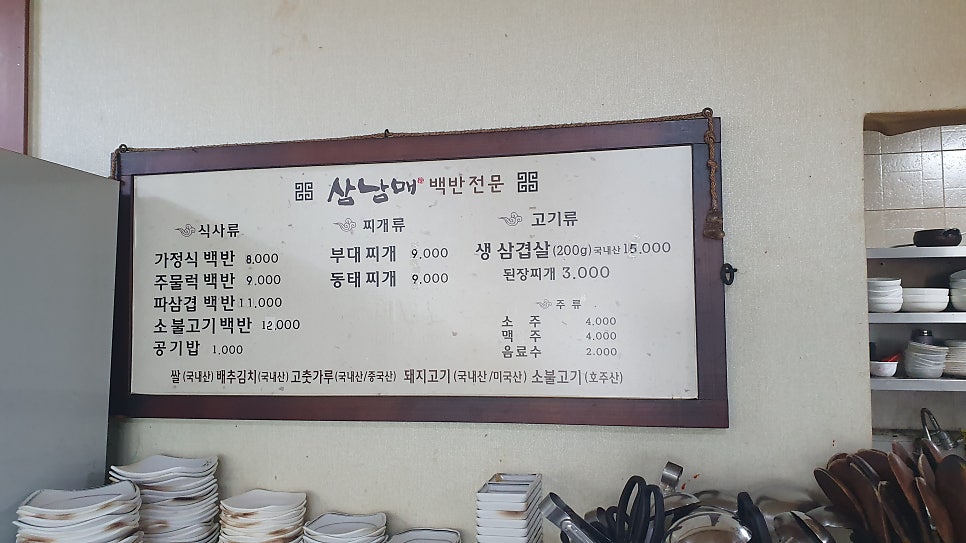 삼남매 백반전문
식사류
가정식 백반 8,000
주물럭 백반 9,000
파삼겹 백반 11,000
소불고기 백반 12,000
공기밥 1,000
찌개류
부대 찌개 9,000
동태 찌개 9,000
고기류
생 삼겹살 (200g) 국내산 15,000
된장찌개 3,000
주 류
소 주 4,000
맥 주 4,000
음료수 2,000
쌀 (국내산) 배추김치 (국내산) 고춧가루 (국내산/중국산) 돼지고기 (국내산/미국산) 소불고기 (호주산)